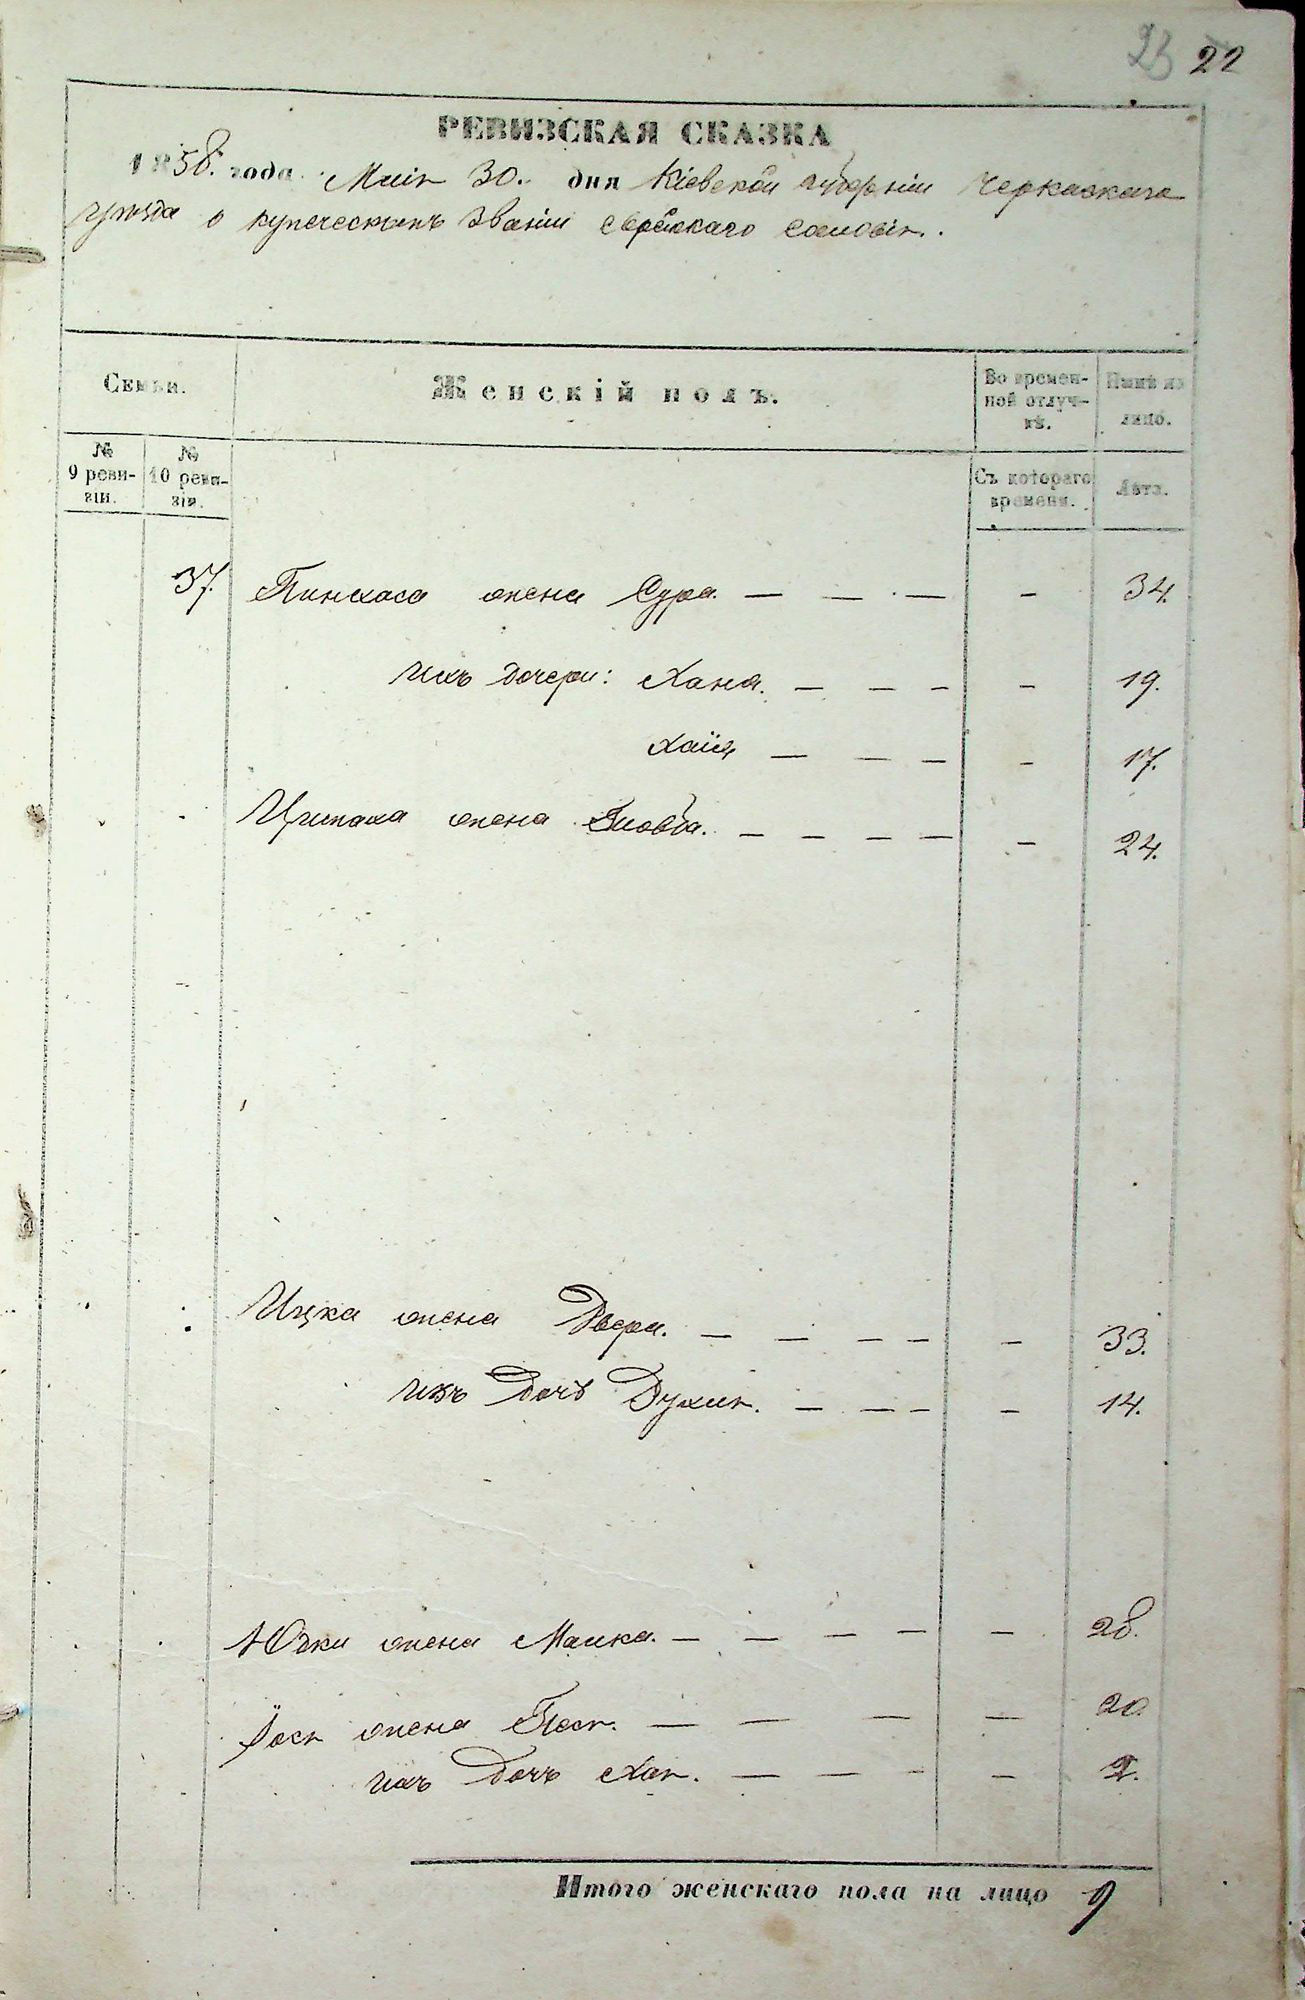 23 22
РЕВИЗСКАЯ СКАЗКА
1858. года Маія 30. дня Кіевской губерніи Черкаскаго
уѣзда о купеческомъ званіи еврейскаго сословія.
Семьи.
Женскій полъ.
Во времен-
ной отлуч-
кѣ.
Нынѣ на
лицо.
№
9 реви-
зіи.
№
10 реви-
зіи.
Съ котораго
времени.
Лѣта.
37. Пинхаса жена Сура. — — — - 34.
ихъ дочери: Хана. — — — - 19.
Хаия — — — - 17.
жена — — — — - 24.
Ицка жена Двера. — — — — - 33.
ихъ дочь — — — - 14.
Юдки жена Малка. — — — — - 28.
жена Песя. — — — - 20.
ихъ дочь Хая. — — - - 2.
Итого женскаго пола на лицо 9